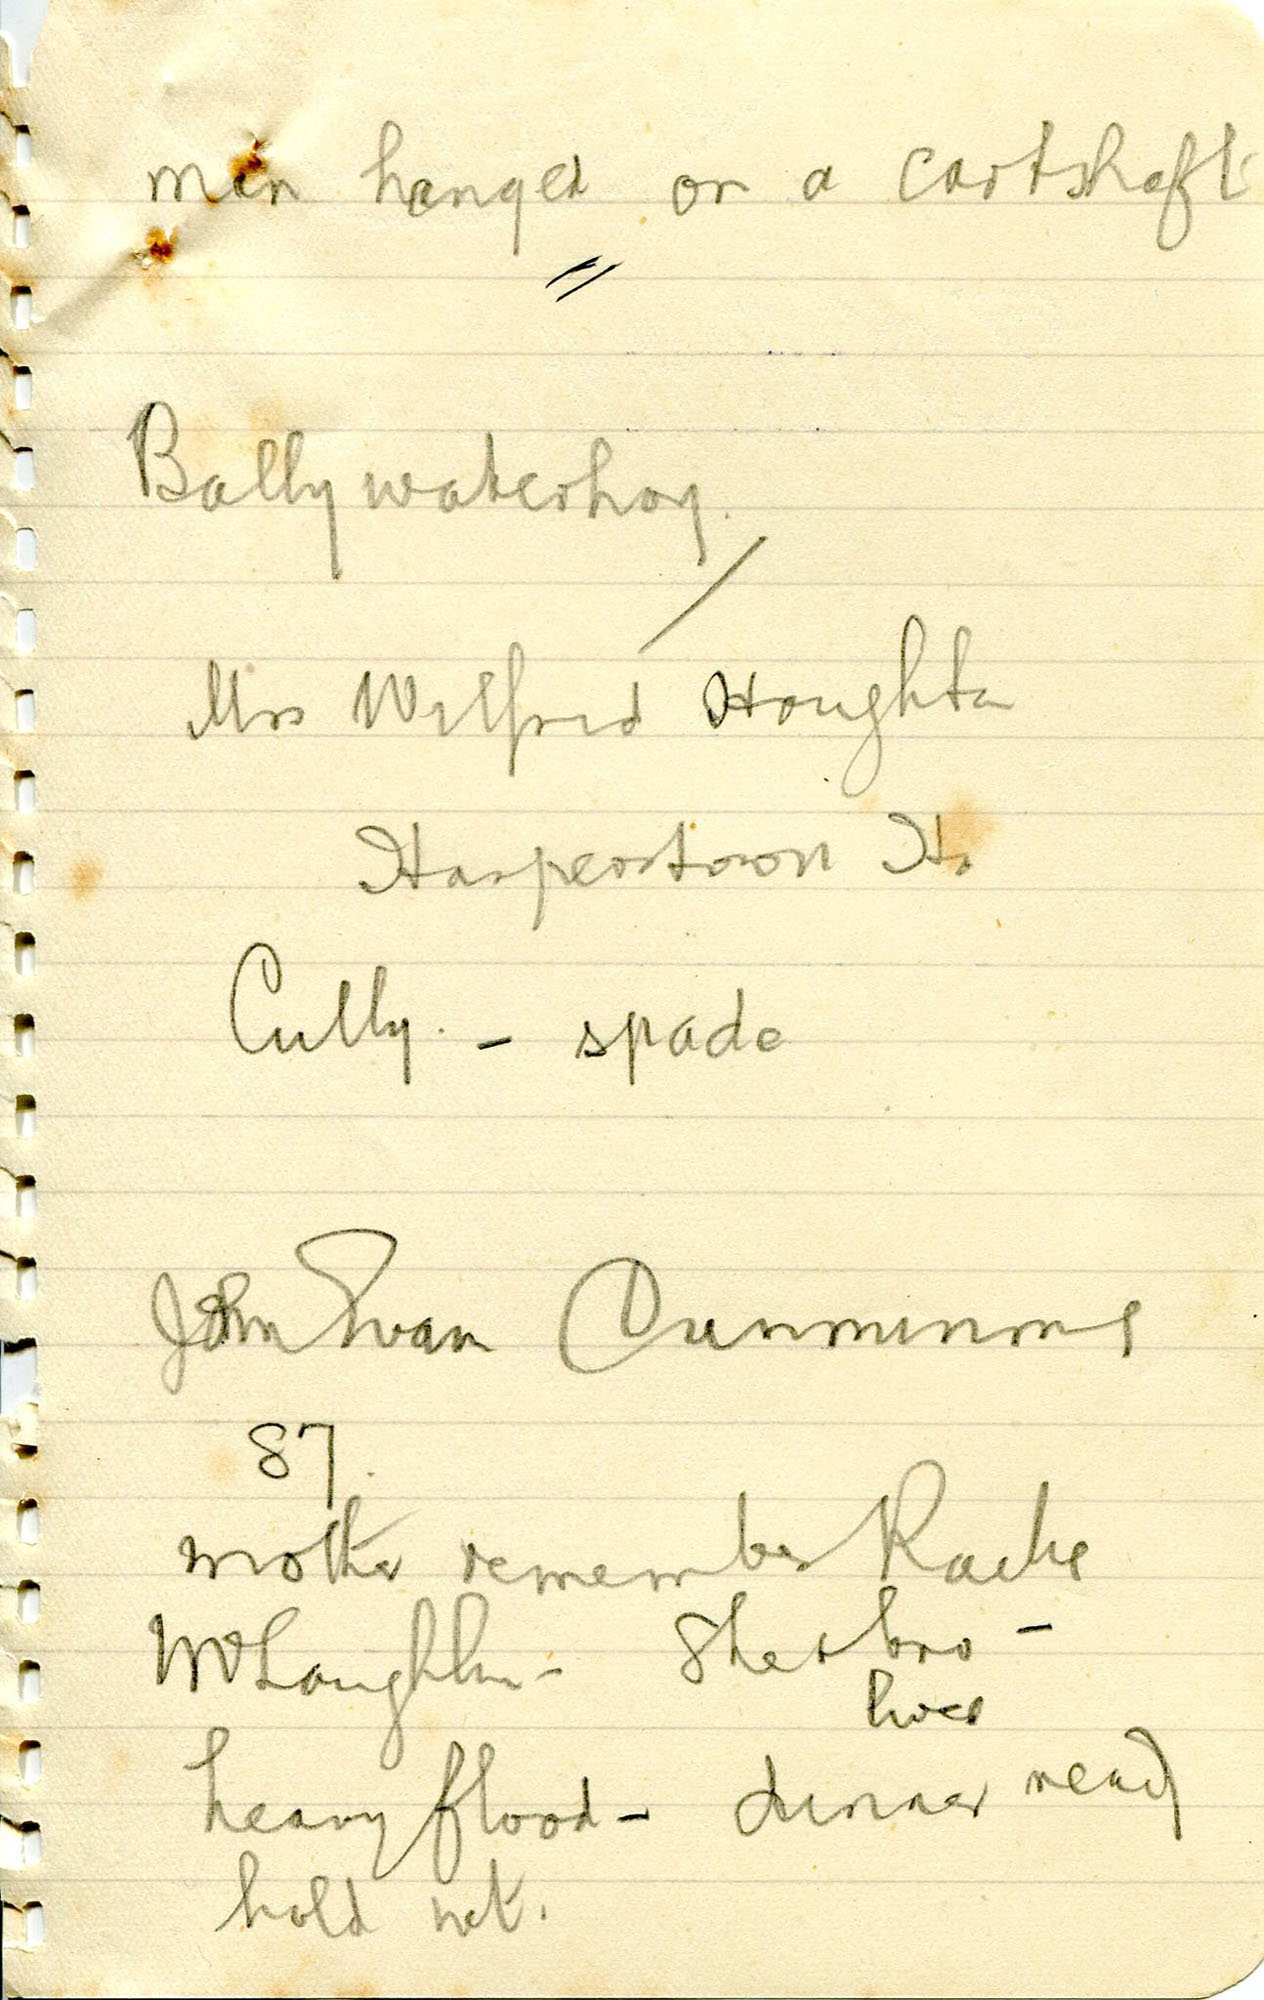 man hanged on a cartshaft
"
Ballywaterhoy.
/
Mrs Wilfred Houghton
Harperstown Ho
Cully. - spade
John Swan Cummins
87.
mother remember
McLaughlin -
heavy flood - dinner ready
hold net.